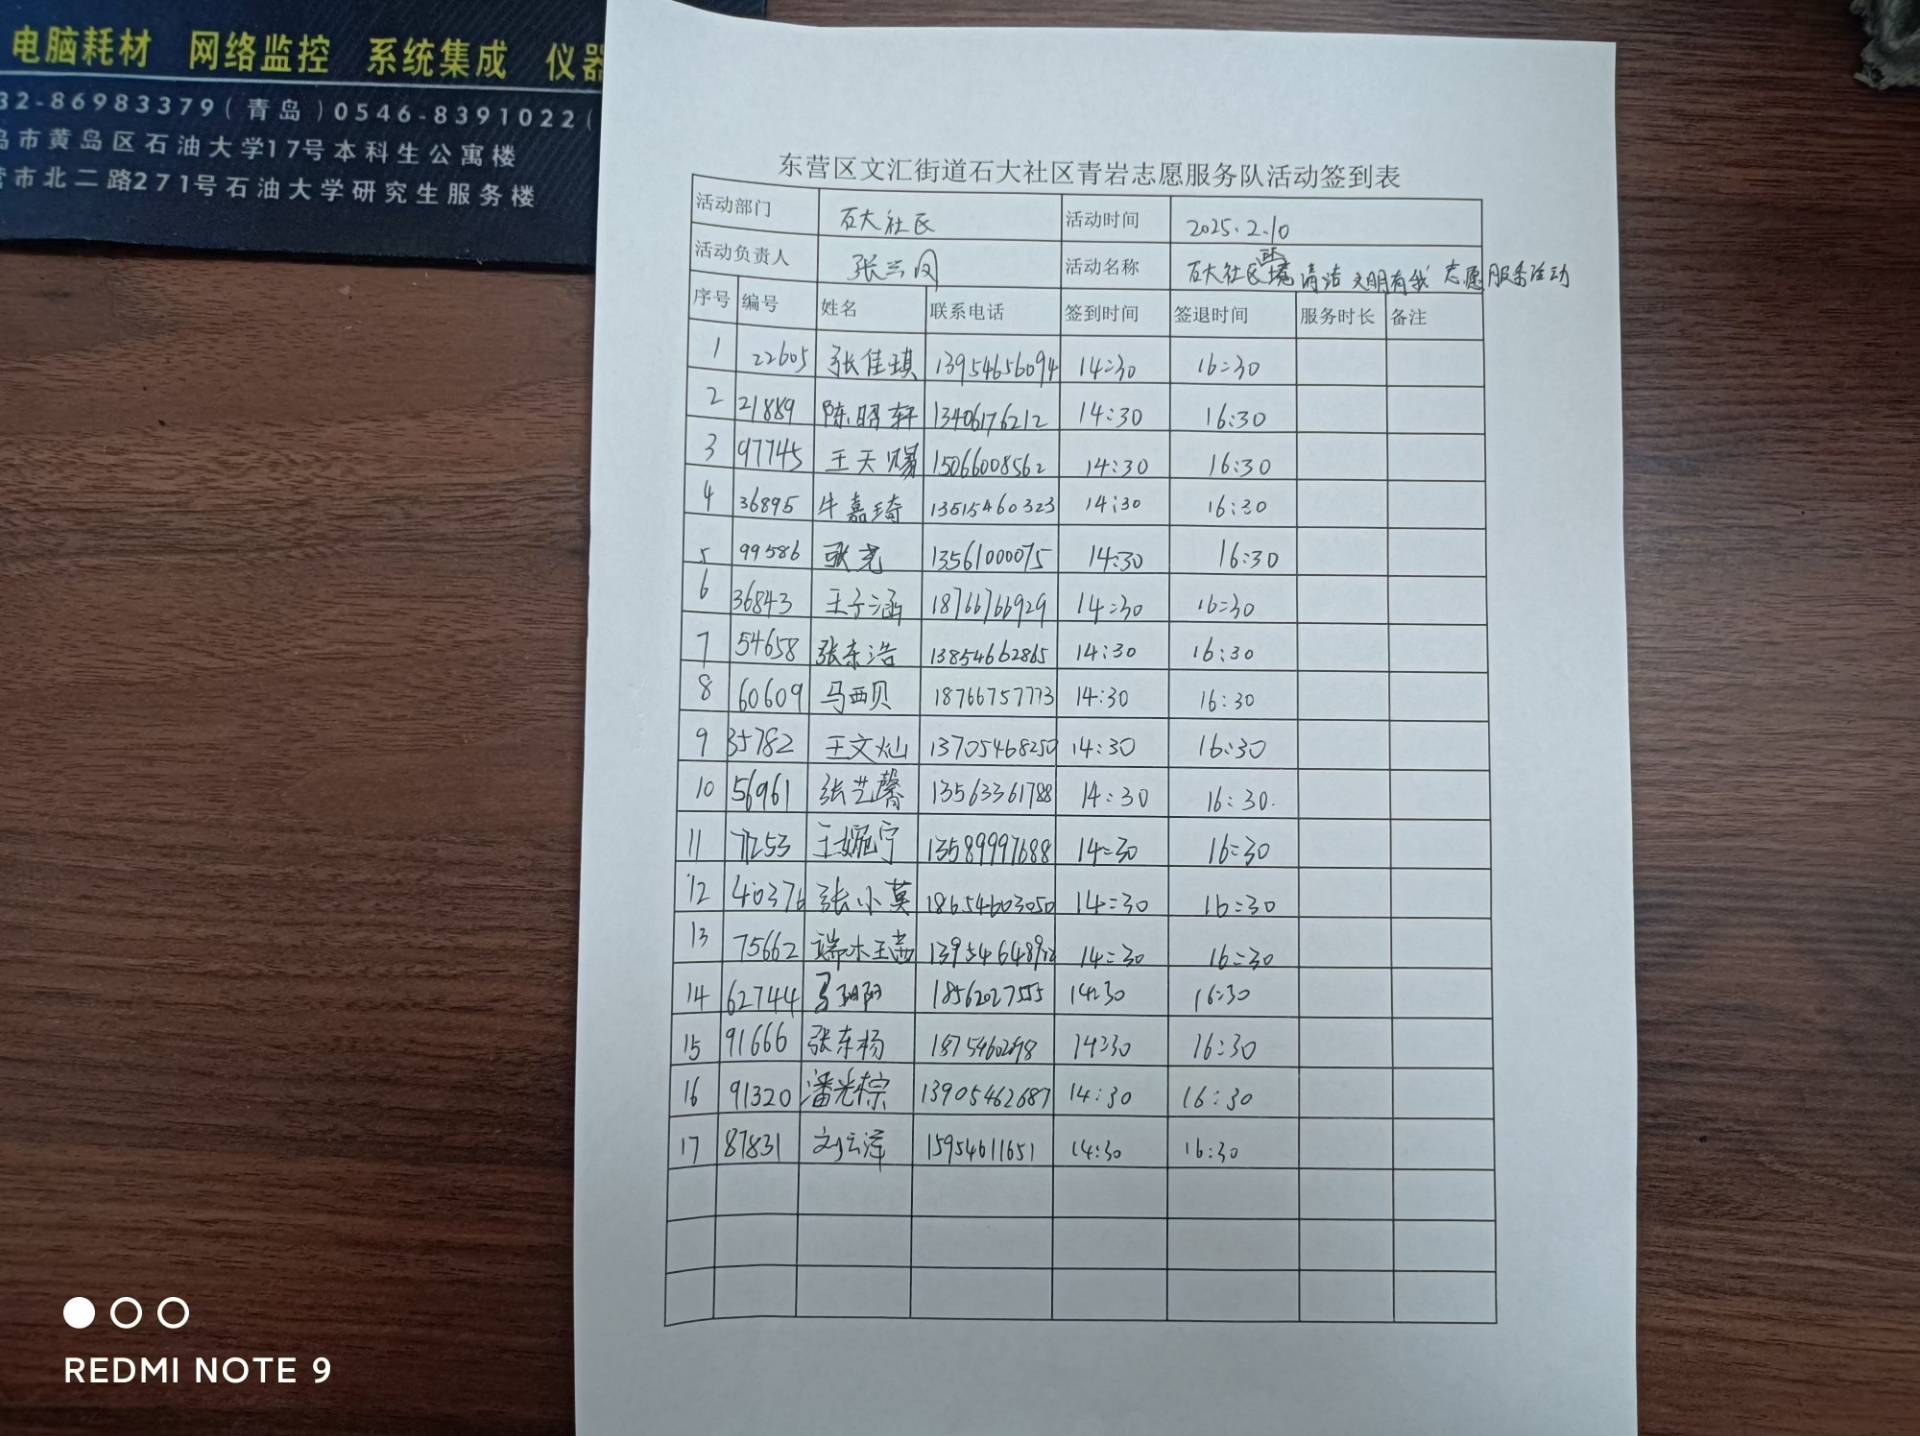 电脑耗材 网络监控 系统集成 仪器
32-86983379(青岛)0546-8391022(
岛市黄岛区石油大学17号本科生公寓楼
营市北二路271号石油大学研究生服务楼
东营区文汇街道石大社区青岩志愿服务队活动签到表
活动部门 石大社区 活动时间 2025.2.10
活动负责人 张兰凤 活动名称 石大社区环境清洁 文明有我 志愿服务活动
序号 编号 姓名 联系电话 签到时间 签退时间 服务时长 备注
1 22605 张佳琪 13954656094 14:30 16:30
2 21889 陈昭轩 13406176212 14:30 16:30
3 97745 王天赐 15066008562 14:30 16:30
4 36895 牛嘉琦 13515460323 14:30 16:30
5 99586 张尧 13561000075 14:30 16:30
6 36843 王子涵 18766766929 14:30 16:30
7 54658 张东浩 13854662865 14:30 16:30
8 60609 马西贝 18766757773 14:30 16:30
9 35782 王文灿 13705468250 14:30 16:30
10 56961 张艺馨 13563361788 14:30 16:30.
11 71253 王婉宁 13589997688 14:30 16:30
12 40376 张小莫 18654603050 14:30 16:30
13 75662 端木王茜 14:30 16:30
14 62744 马 18562027555 14:30 16:30
15 91666 张东杨 14:30 16:30
16 91320 潘光棕 13905462687 14:30 16:30
17 87831 刘云泽 15954611651 14:30 16:30
REDMI NOTE 9